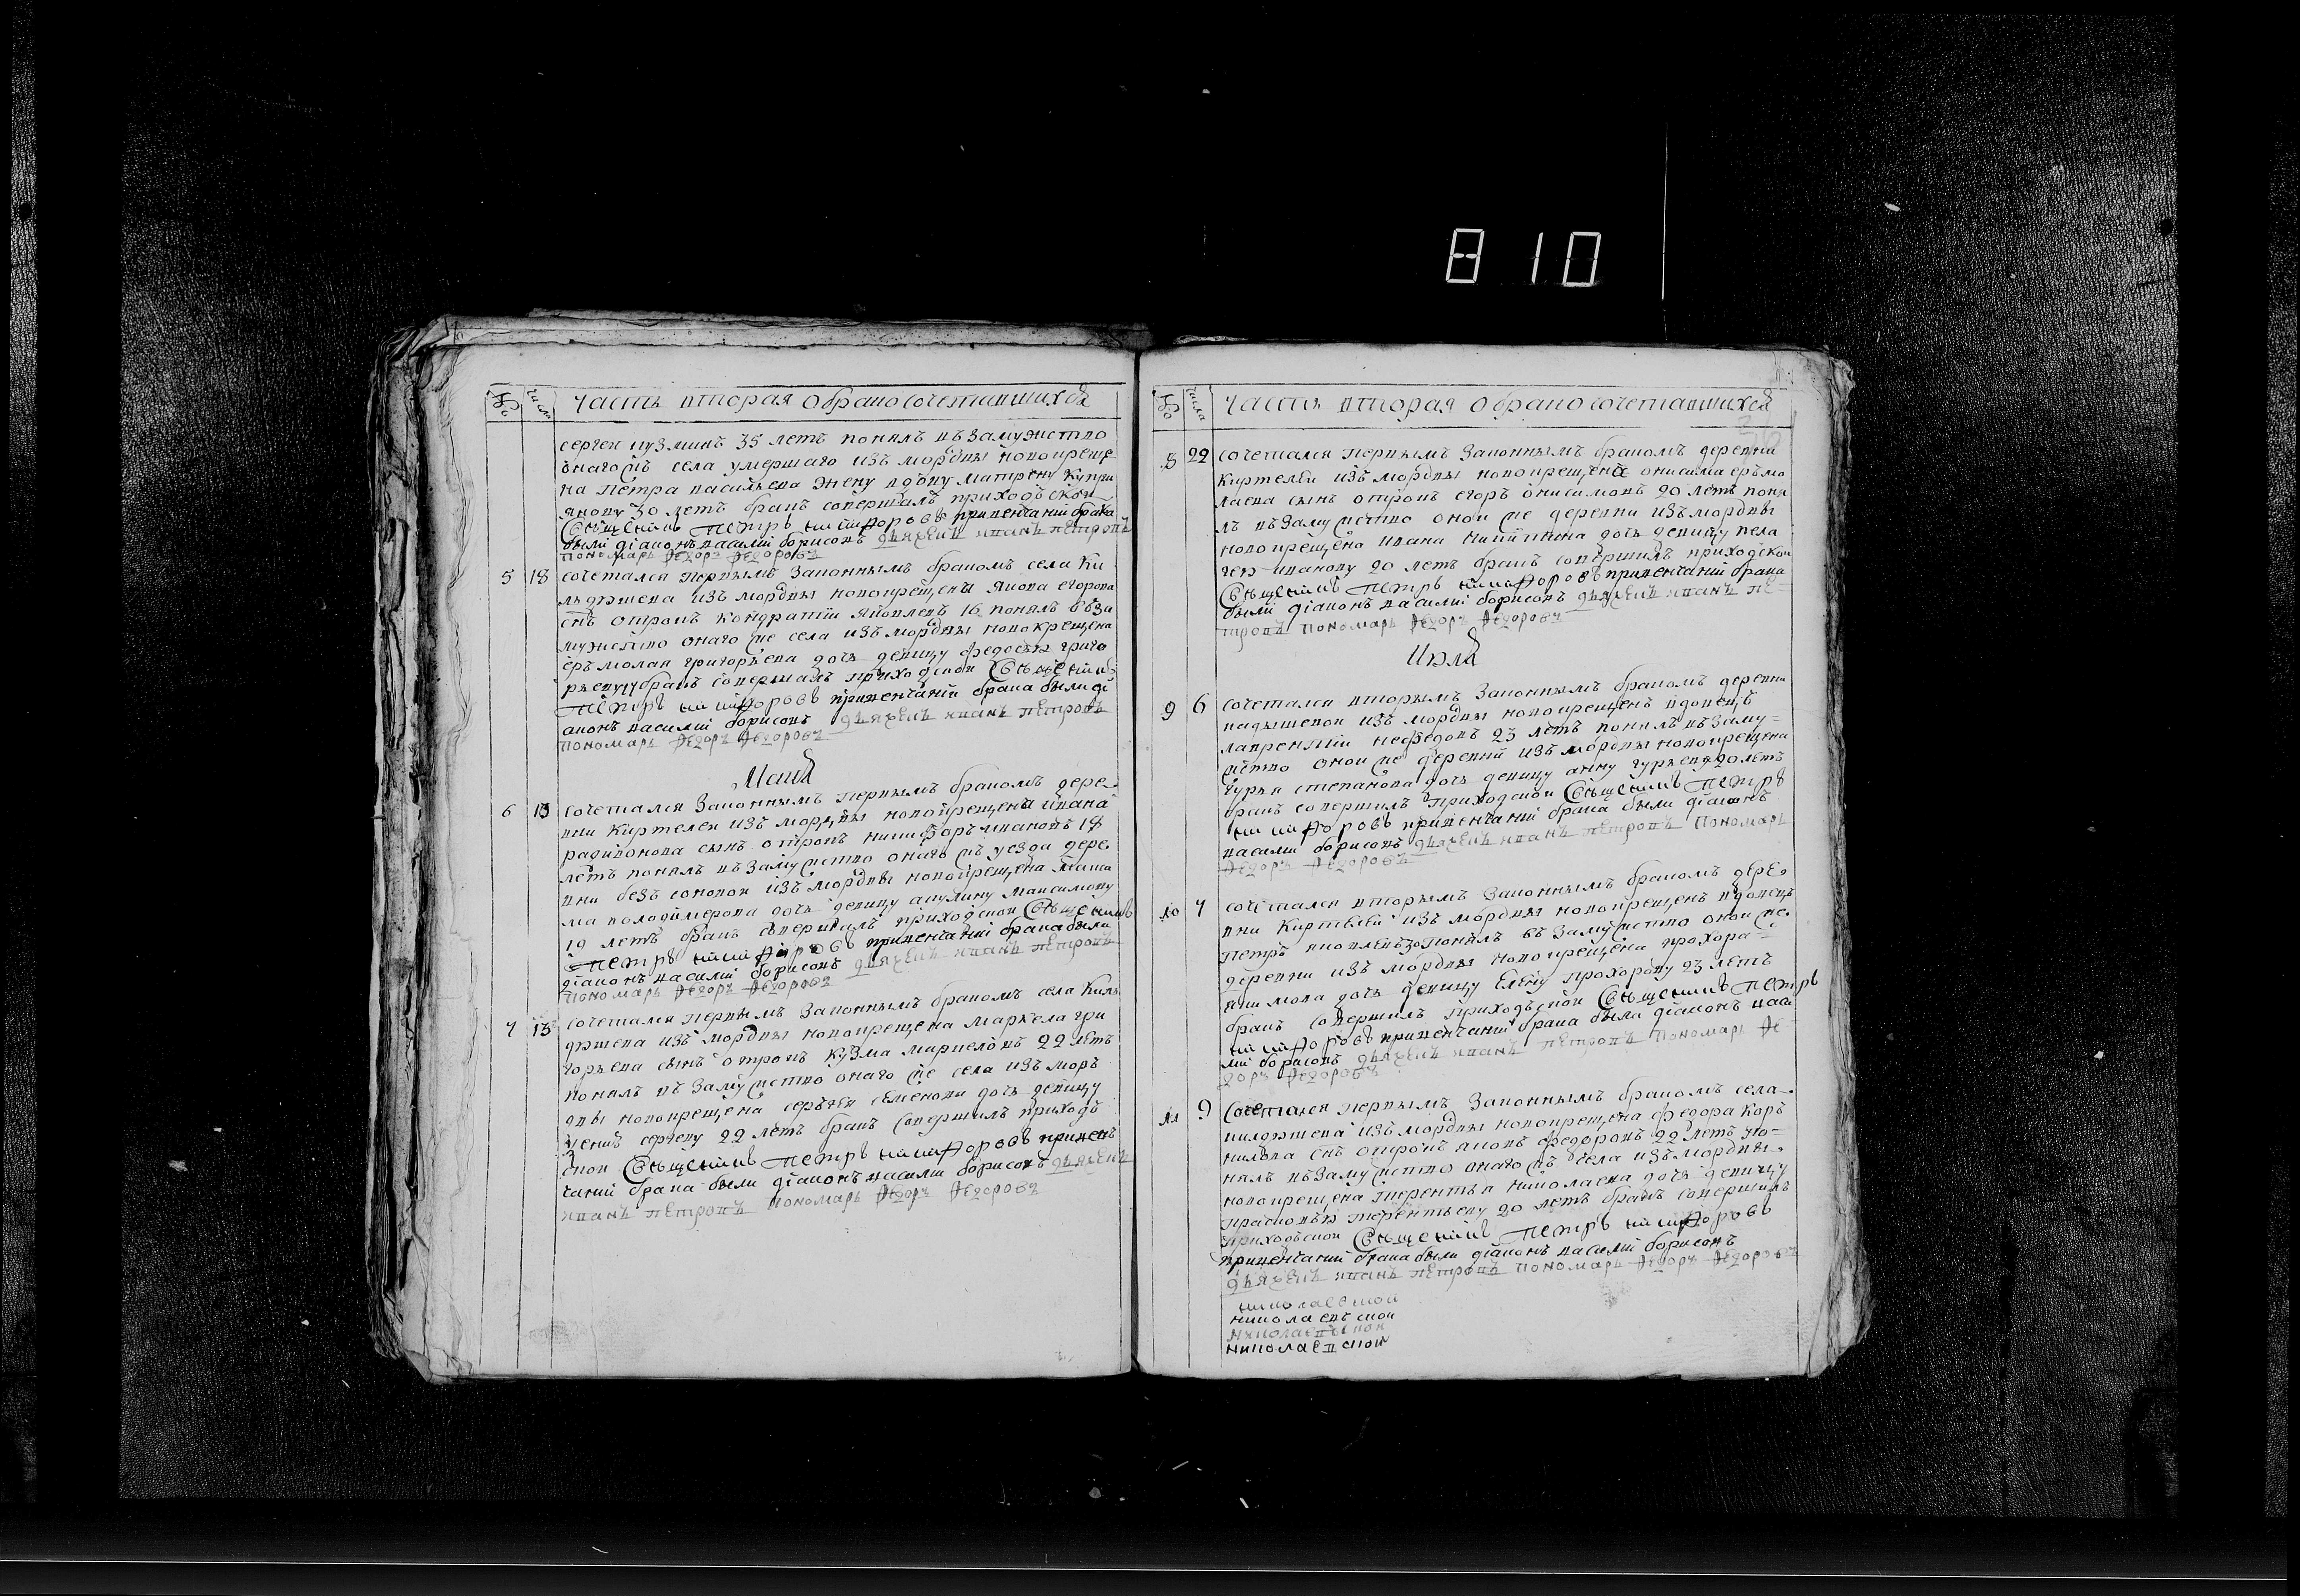 810
№ числа Часть вторая о бракосочетавшихся
Сергеи кузминъ 35 летъ понялъ въ замужство
онагожъ села умершаго изъ мордвы новокреще
на петра васильева жену вдову матрену купри
янову 30 летъ бракъ совершалъ приходской
Священникъ Петръ никифоровъ привенчаніи брака
были діаконъ василіи борисовъ дьячекъ иванъ петровъ
пономарь Федоръ Федоровъ
5 18 сочетался первымъ законнымъ бракомъ села Ки
льдюшева изъ мордвы новокрещена якова егорова
снъ отрокъ кондратіи яковлевъ 16 понялъ въ за
мужство онаго же села изъ мордвы новокрещена
ермолая григорьева дочь девицу федосью григо
рьевуу бракъ совершалъ приходской Священникъ
Петръ никифоровъ привенчаніи брака были ді
аконъ василіи борисовъ дьячекъ иванъ петровъ
пономарь Федоръ Федоровъ
Маия
6 13 сочетался законнымъ первымъ бракомъ дере
вни Киртелеи изъ мордвы новокрещена ивана
радивонова сынъ отрокъ никифоръ ивановъ 18
летъ понялъ въ замужство онаго жъ уезда дере
вни безсоновои изъ мордвы новокрещена макси
ма володимерова дочь девицу акулину максимову
19 летъ бракъ совершилъ приходской Священникъ
Петръ никифоровъ привенчаніи брака были
діаконъ василіи борисовъ дьячекъ иванъ петровъ
пономарь Федоръ Федоровъ
7 13 сочетался первымъ законнымъ бракомъ села Киль
дюшева изъ мордвы новокрещена Маркела гри
горьева сынъ отрокъ кузма маркеловъ 22 летъ
понялъ въ замужство онаго же села изъ морь
двы новокрещена сергея семенова дочь девицу
сергеву 22 летъ бракъ совершилъ приходъ
скои Священникъ Петръ никифоровъ привенъ
чаніи брака были діаконъ василіи борисовъ дьячекъ
иванъ петровъ пономарь Федоръ Федоровъ
№ числа Часть вторая о бракосочетавшихся
36
8 22 сочетался первымъ законнымъ бракомъ деревни
Киртелеи изъ мордвы новокрещена онисима ермо
лаева сынъ отрокъ егоръ онисимовъ 20 летъ поня
лъ въ замужство онои же деревни изъ мордвы
новокрещена ивана никитина дочь девицу пела
гею иванову 20 летъ бракъ совершилъ приходской
Священникъ Петръ никифоровъ привенчаніи брака
были діаконъ василіи борисовъ дьячекъ иванъ пе
тровъ пономарь Федоръ Федоровъ
Июля
9 6 сочетался вторымъ законнымъ бракомъ деревни
кадышевои изъ мордвы новокрещенъ вдовецъ
лаврентіи нефедовъ 23 летъ понялъ въ заму
жство онои же деревни изъ мордвы новокрещена
гурья степанова дочь девицу анну гурьеву 20 летъ
бракъ совершилъ приходской Священникъ Петръ
никифоровъ привенчаніи брака были діаконъ
василіи борисовъ дьячекъ иванъ петровъ пономарь
Федоръ Федоровъ
10 7 сочетался вторымъ законнымъ бракомъ дере
вни Киртелеи изъ мордвы новокрещенъ вдовецъ
петръ яковлевъ 30 понялъ въ замужство онои же
деревни изъ мордвы новокрещена прохора
якимова дочь девицу Елену прохорову 23 летъ
бракъ совершилъ приходъскои Священникъ Петръ
никифоровъ привенчаніи брака были діаконъ васи
ліи борисовъ дьячекъ иванъ петровъ пономарь Фе
доръ Федоровъ
11 9 Сочетался первымъ законнымъ бракомъ села
килдюшева изъ мордвы новокрещена федора Кор
нилова снъ отрокъ яковъ федоровъ 22 летъ по
нялъ въ замужство онаго жъ села изъ мордвы
новокрещена терентья николаева дочь девицу
прасковью терентьеву 20 летъ бракъ совершилъ
приходъскои Священникъ Петръ никифоровъ
привенчаніи брака были діаконъ василіи борисовъ
дьячекъ иванъ петровъ пономарь Федоръ Федоровъ
николаевской
николаевъской
николаевъской
николаевской